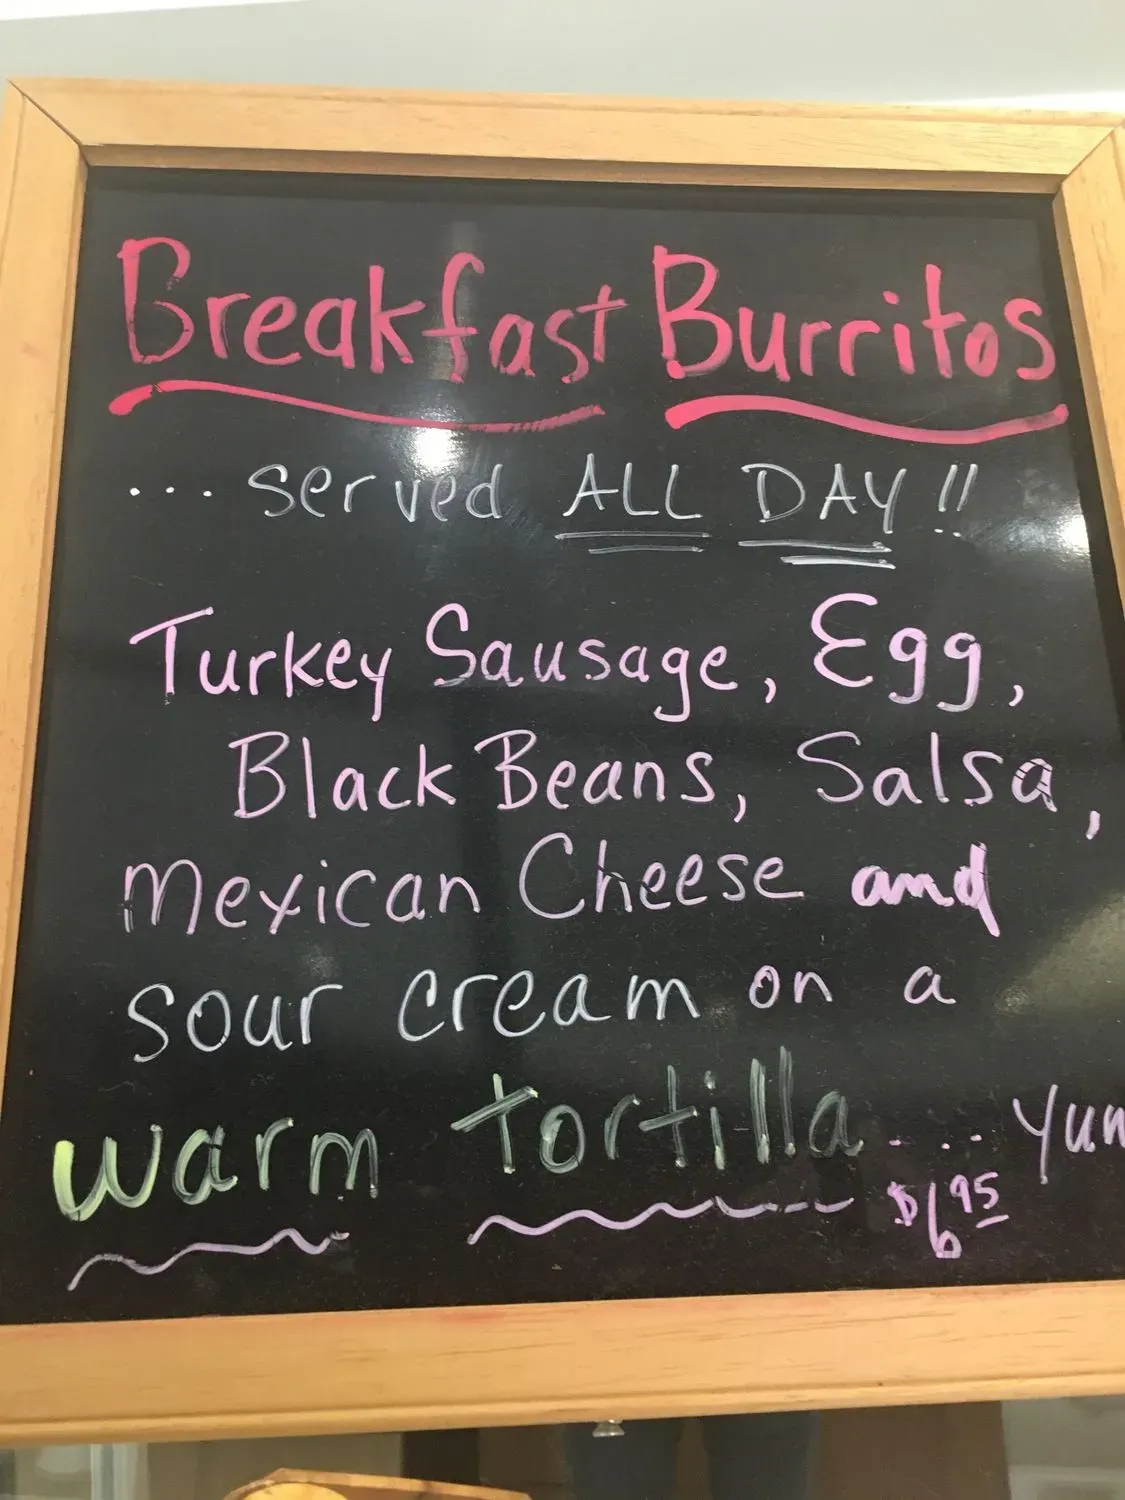 Breakfast Burritos
... served ALL DAY!!
Turkey Sausage, Egg,
Black Beans, Salsa,
Mexican Cheese and
sour cream on a
warm tortilla.... Yum
$6.95